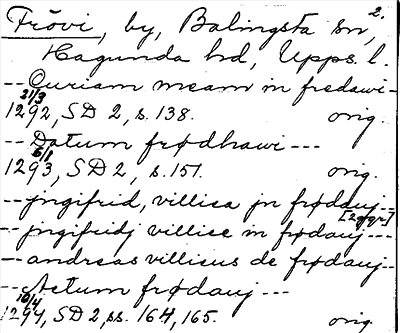 2.
Frövi, by, Balingsta sn,
Hagunda hd, Upps. l.
-- Curiam meam in fredawi--
21/3
1292, SD 2, s. 138. orig.
-- Datum frødhawi ---
6/1
1293, SD 2, s. 151. orig.
-- jngifrid, villica jn frødauj--
[2ggr]
-- jngifridj villice in frødauj ---
-- andreas villicus de frødauj--
-- Actum frødauj ---
10/4
1294, SD 2, ss. 164, 165. orig.